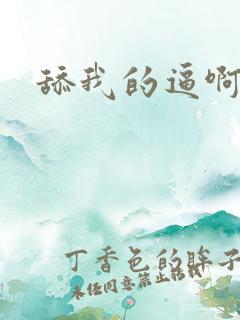 舔我的逼啊
丁香色的眸子
未经同意禁止转载